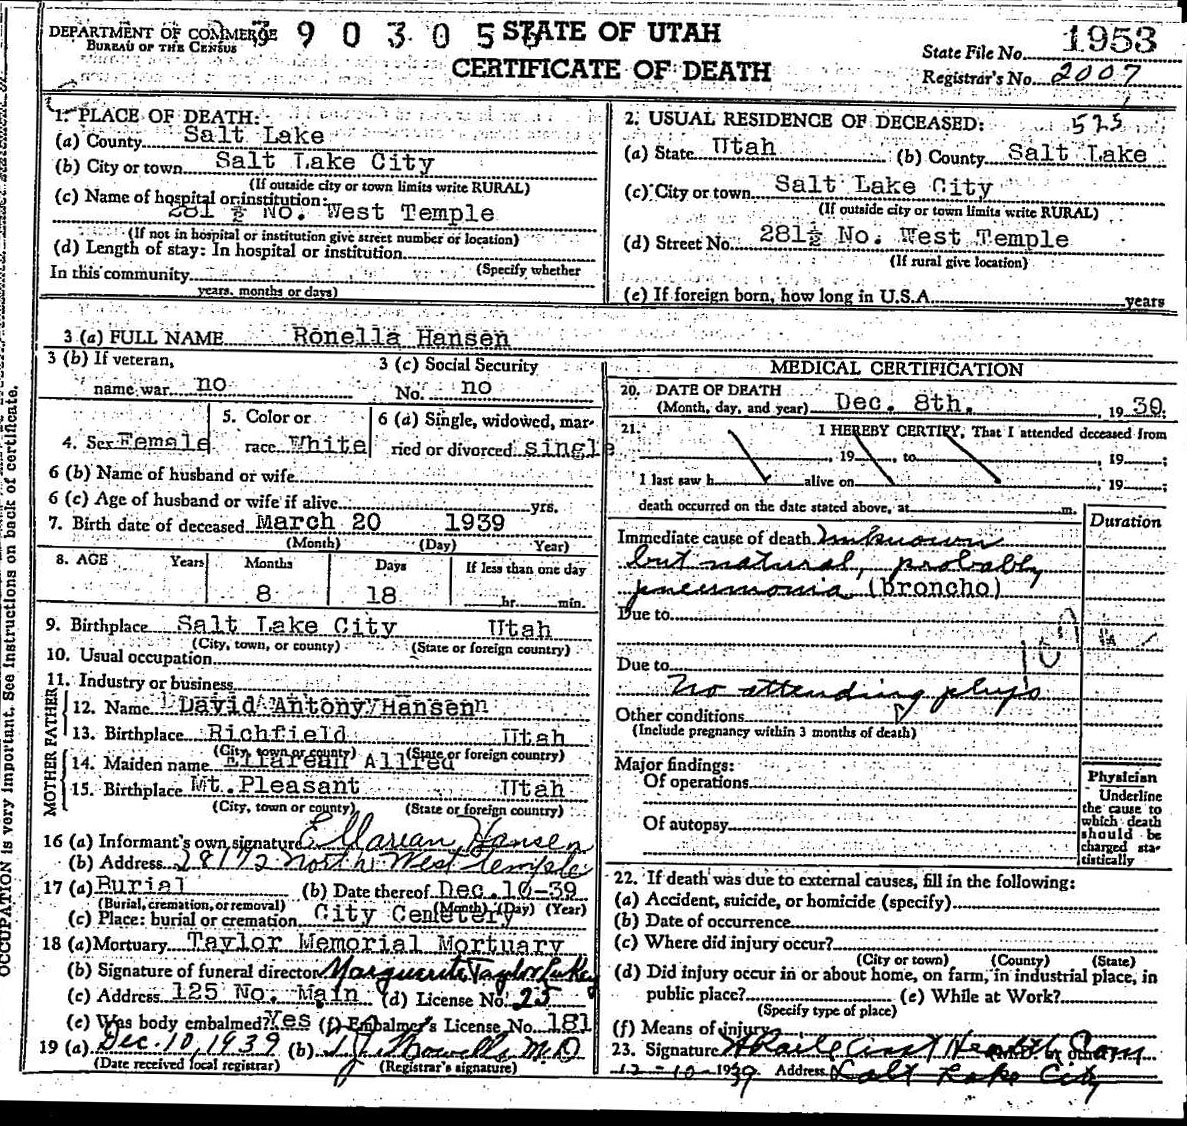 DEPARTMENT OF COMMERCE
BUREAU OF THE CENSUS
3903056
STATE OF UTAH
CERTIFICATE OF DEATH
State File No. 1953
Registrar's No. 2007
1. PLACE OF DEATH:
(a) County Salt Lake
(b) City or town Salt Lake City
(If outside city or town limits write RURAL)
(c) Name of hospital or institution:
281 ½ No. West Temple
(If not in hospital or institution give street number or location)
(d) Length of stay: In hospital or institution
(Specify whether
In this community
years, months or days)
2. USUAL RESIDENCE OF DECEASED: 525
(a) State Utah (b) County Salt Lake
(c) City or town Salt Lake City
(If outside city or town limits write RURAL)
(d) Street No. 281½ No. West Temple
(If rural give location)
(e) If foreign born, how long in U.S.A. years
3 (a) FULL NAME Ronella Hansen
3 (b) If veteran, name war no
3 (c) Social Security No. no
4. Sex Female
5. Color or race White
6 (a) Single, widowed, married or divorced single
6 (b) Name of husband or wife
6 (c) Age of husband or wife if alive yrs.
7. Birth date of deceased March 20 1939
(Month) (Day) Year)
8. AGE Years Months Days If less than one day
8 18 hr. min.
9. Birthplace Salt Lake City Utah
(City, town, or county) (State or foreign country)
10. Usual occupation
11. Industry or business
FATHER
12. Name David Antony Hansen
13. Birthplace Richfield Utah
(City, town or county) (State or foreign country)
MOTHER
14. Maiden name Ellarean Allred
15. Birthplace Mt. Pleasant Utah
(City, town or county) (State or foreign country)
16 (a) Informant's own signature Ellarean Hansen
(b) Address 281½ North West Temple
17 (a) Burial (b) Date thereof Dec. 10-39
(Burial, cremation, or removal) (Month) (Day) (Year)
(c) Place: burial or cremation City Cemetery
18 (a) Mortuary Taylor Memorial Mortuary
(b) Signature of funeral director Marguerite Taylor
(c) Address 125 No. Main (d) License No. 25
(e) Was body embalmed? Yes (f) Embalmer's License No. 181
19 (a) Dec. 10, 1939 (b) M.D
(Date received local registrar) (Registrar's signature)
MEDICAL CERTIFICATION
20. DATE OF DEATH
(Month, day, and year) Dec. 8th. , 19 39
21. I HEREBY CERTIFY, That I attended deceased from
, 19 , to , 19 ;
I last saw h alive on , 19 ;
death occurred on the date stated above, at m.
Duration
Immediate cause of death Unknown
but natural, probably
pneumonia (broncho)
Due to
Due to
No attending phys
Other conditions
(Include pregnancy within 3 months of death)
Major findings:
Of operations
Of autopsy
Physician
Underline the cause to which death should be charged statistically
22. If death was due to external causes, fill in the following:
(a) Accident, suicide, or homicide (specify)
(b) Date of occurrence
(c) Where did injury occur?
(City or town) (County) (State)
(d) Did injury occur in or about home, on farm, in industrial place, in
public place? (e) While at Work?
(Specify type of place)
(f) Means of injury
23. Signature Health Com
(M.D. or other)
12-10-1939 Address Salt Lake City
OCCUPATION is very important. See instructions on back of certificate.